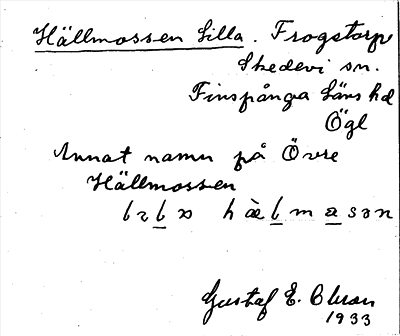 Hällmossen Lilla. Frogstorp
Skedevi sn.
Finspånga Läns hd
Ögl
Annat namn på Övre
Hällmossen
hàlmasən
Gustaf E. Olson
1933